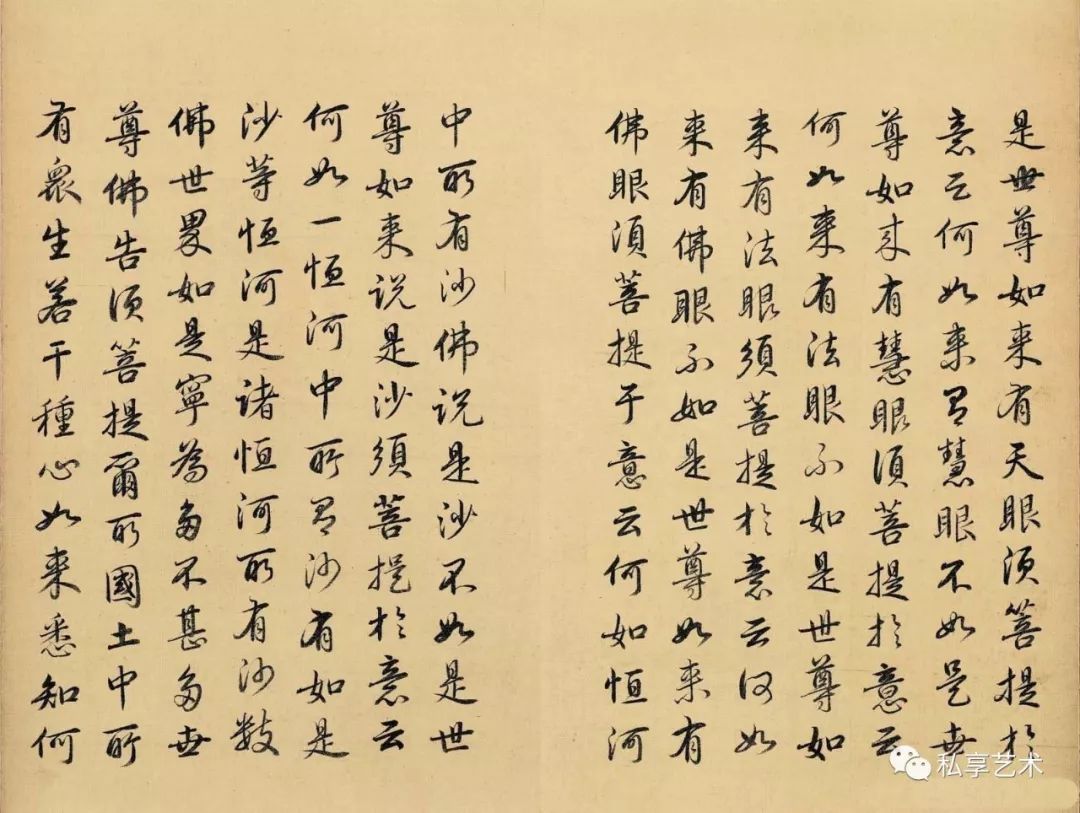 是世尊如来有天眼须菩提於
意云何如来有慧眼不如是世
尊如来有慧眼须菩提於意云
何如来有法眼不如是世尊如
来有法眼须菩提於意云何如
来有佛眼不如是世尊如来有
佛眼须菩提于意云何如恒河
中所有沙佛说是沙不如是世
尊如来说是沙须菩提於意云
何如一恒河中所有沙有如是
沙等恒河是诸恒河所有沙数
佛世界如是寧為多不甚多世
尊佛告须菩提爾所國土中所
有衆生若干種心如来悉知何
私享艺术